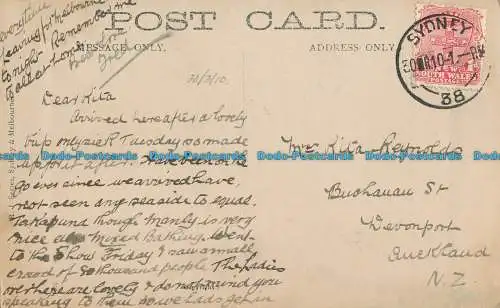 POST CARD.
MESSAGE ONLY.
ADDRESS ONLY.
SYDNEY
38
SOUTH WALES
POSTAGE
leaving for Melbourne
to night. Remember me
to all at home.
Best love
22/3/10.
Dear Rita
Arrived here after a lovely
trip only Tuesday so made
up for it after. Have been on the
go ever since we arrived have
not seen any seaside to equal
Takapuna though Manly is very
nice Mixed Bathing. Went
to the Show Friday & saw a small
crowd of thousand people The ladies
over here are lovely & do not mind you
speaking to them so we lads get on
Rita Reynolds
Buchanan St
Devonport
Auckland
N.Z.
www.bidStart.com